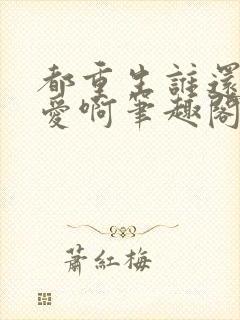 都重生誰還
愛啊筆趣閣
蕭紅梅